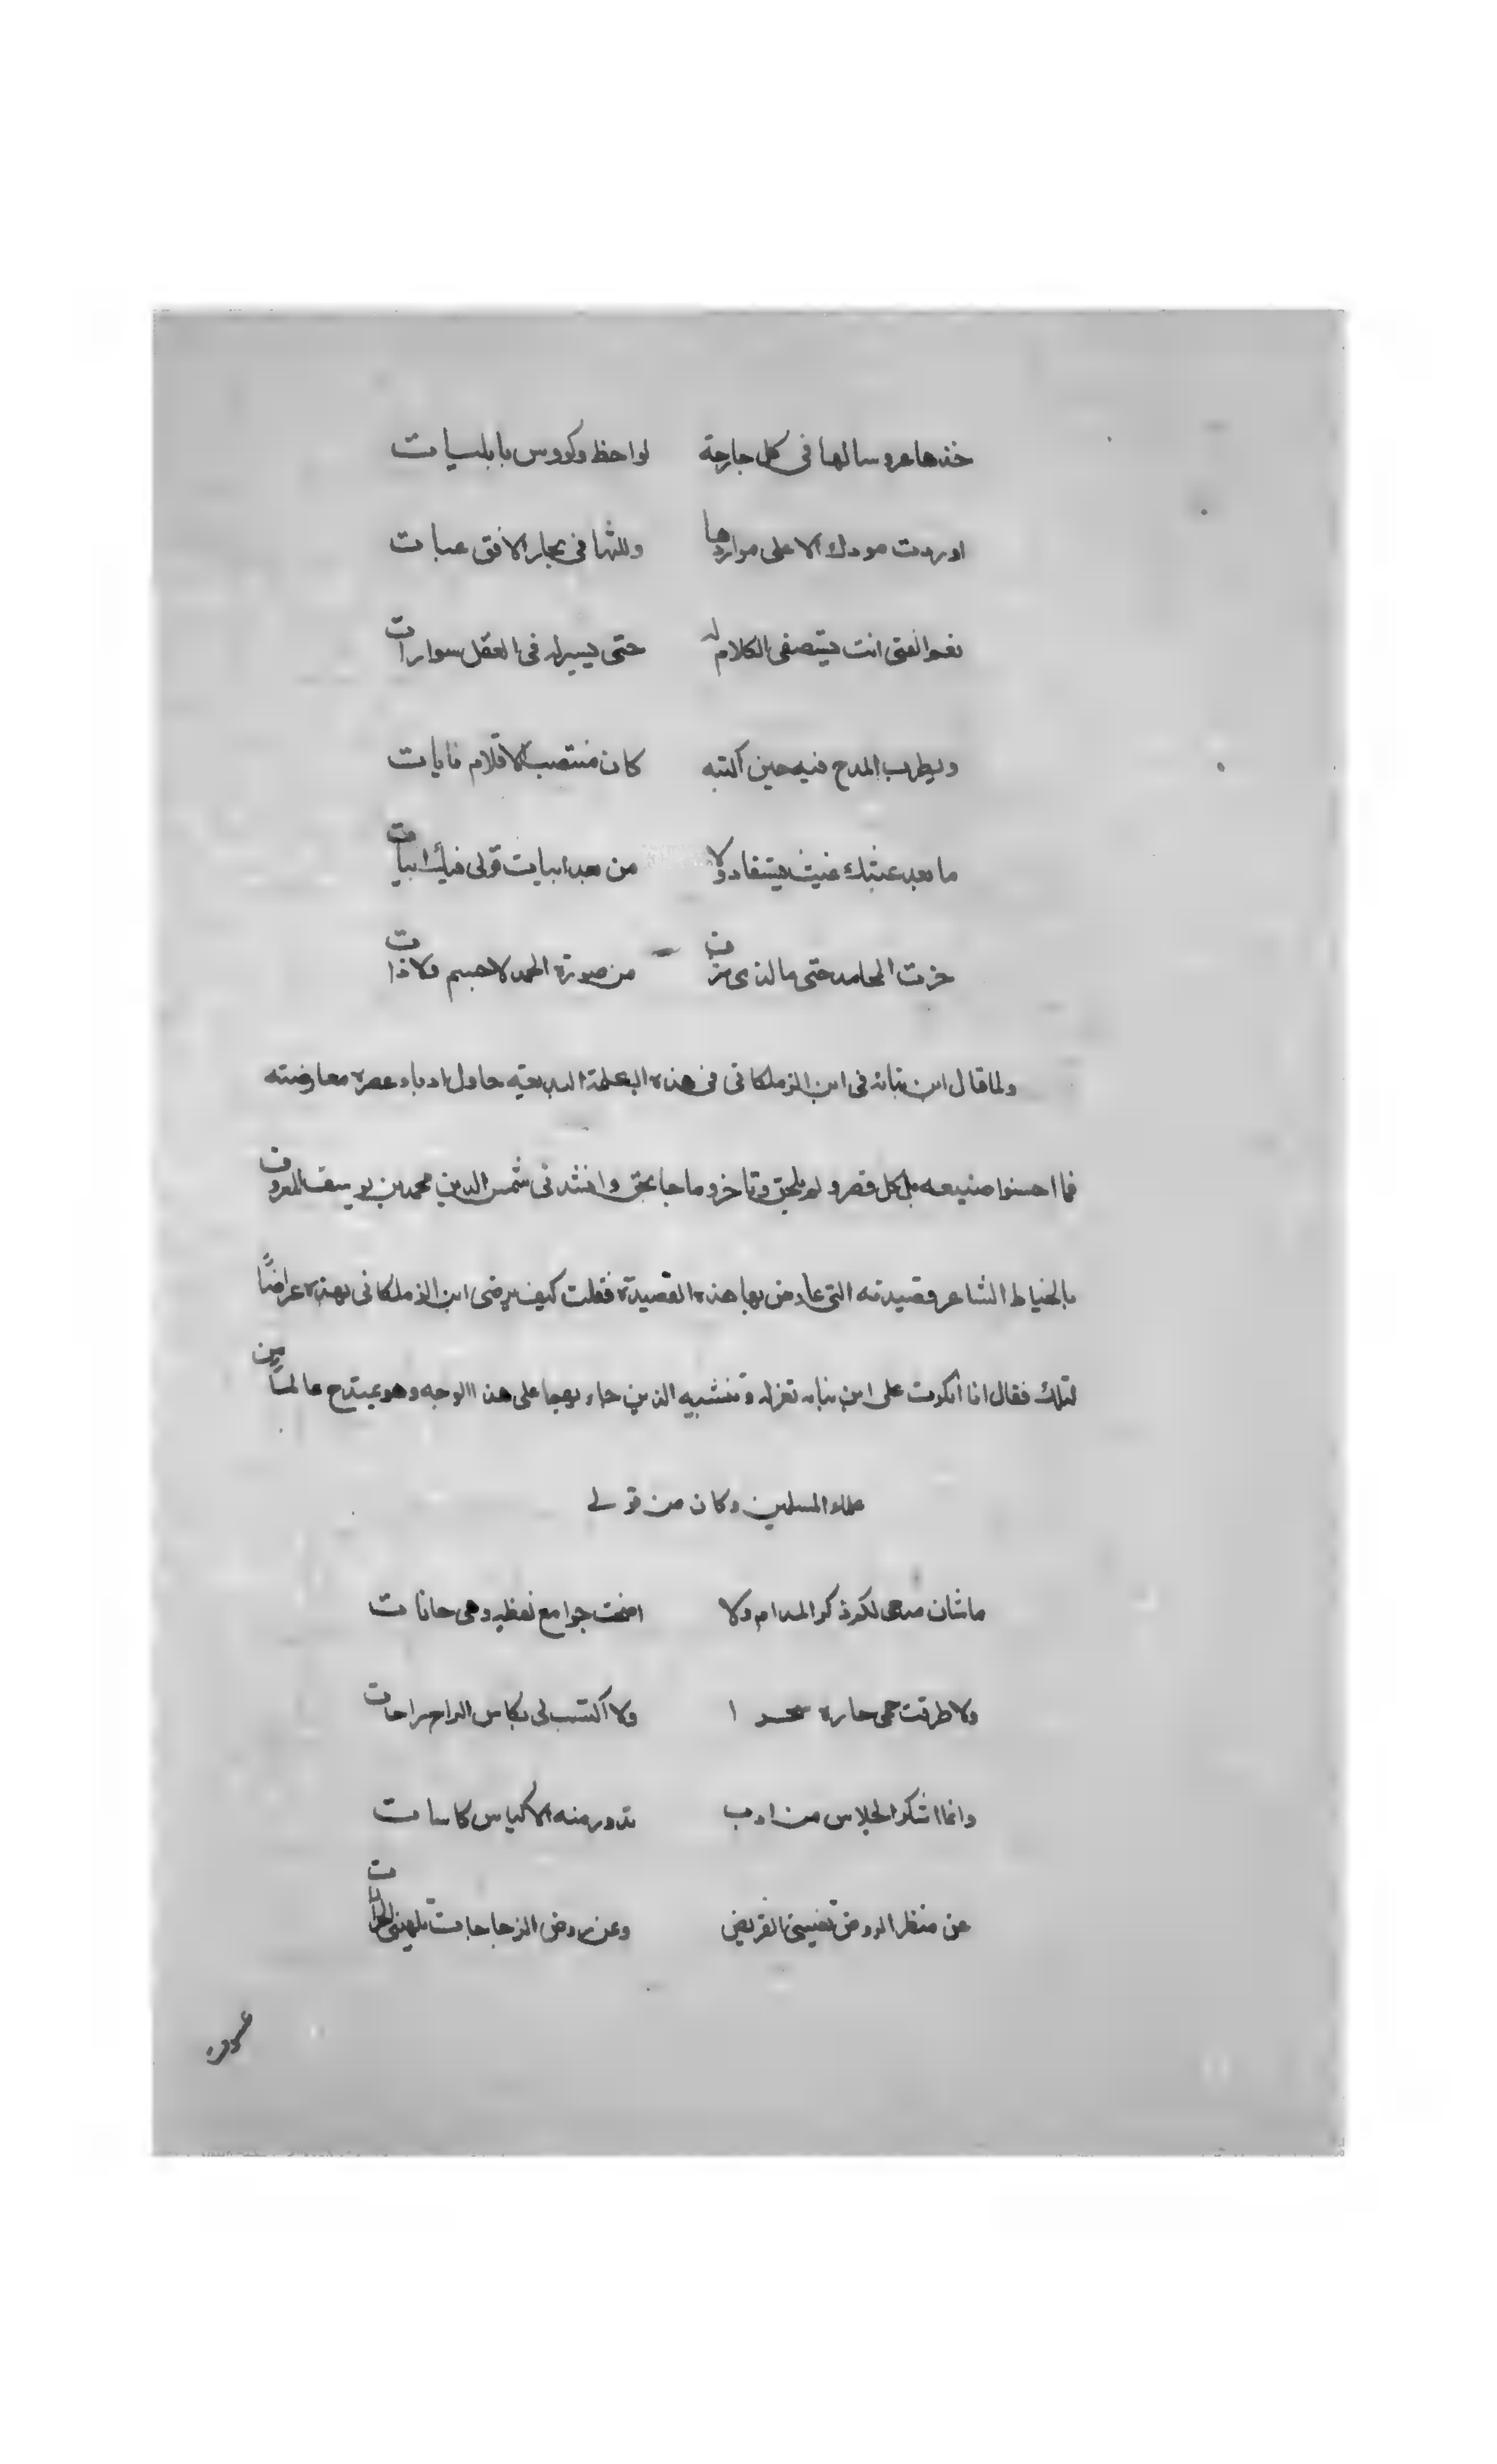 خذها عروسا لها في كل جارحة لواحظ وكووس بابليات
اوردت سوددك الاعلى مواردها وللثها في بحار الافق عبات
نعم الفتى انت يستصفى الكلام له حتى يسير له في العقل سوارات
ويطرب المدح فيه حين اكتبه كان منتصب الاقلام نايات
ما بعد غيثك غيث يستفاد ولا من بعد ابيات قولى فيك ابيات
حزت المحامد حتى ما لذى شرف من صورة الحمد لا جسم ولا ذات
ولما قال ابن نباته في ابن الزملكاني في هذه الكلمة البديعيه حاول ادباء عصره معارضته
فما احسنوا صنيعه بل كل قصر ولم يلحق وتاخر وما جا بحق وانشدنى شمس الدين محمد بن يوسف المعروف
بالخياط الشاعر قصيدته التي عارض بها هذه القصيدة فقلت كيف يرضى ابن الزملكاني بهذه عراضًا
لتلك فقال انا انكرت على ابن نباته تغزله وتشبيه الذين جاء بهما على هذا الوجه وهو يمتدح عالمًا من
علماء المسلمين وكان من قولي
ما شان مدحى لكم ذكر المدام ولا اضحت جوامع لفظيه وهى حانات
ولا طرقت حمى حاره سحرا ولا اكتسب لي بكاس الراح راحات
وانما اشكر الجلاس من ادب تدور منه الاكياس كاسات
عن منظر الروض يغنيني القريض وعن روض الزجاجات تلهيني